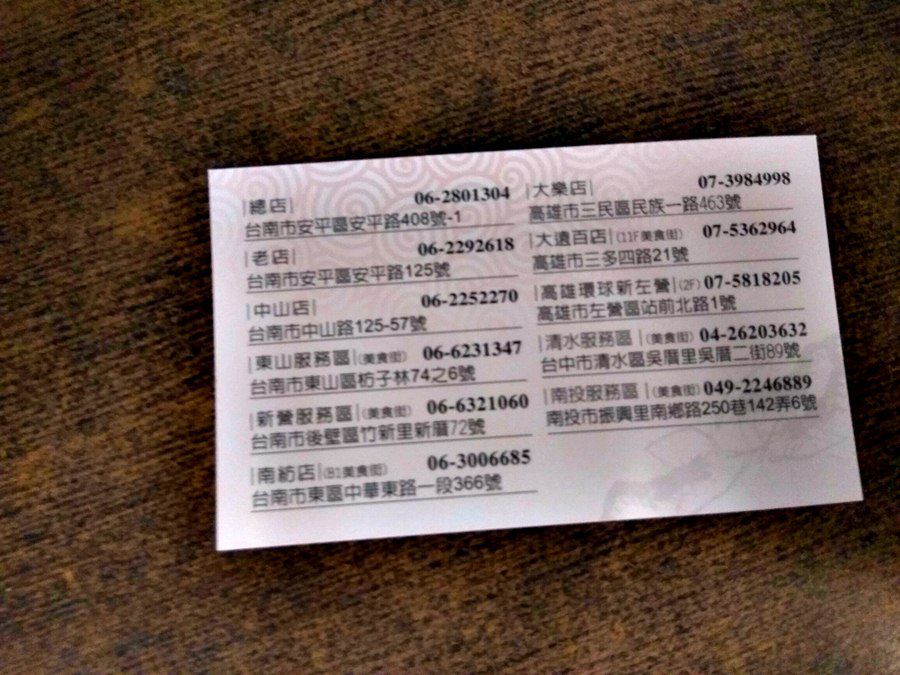 |總店| 06-2801304
台南市安平區安平路408號-1
|老店| 06-2292618
台南市安平區安平路125號
|中山店| 06-2252270
台南市中山路125-57號
|東山服務區|(美食街) 06-6231347
台南市東山區枋子林74之6號
|新營服務區|(美食街) 06-6321060
台南市後壁區竹新里新厝72號
|南紡店|(B1美食街) 06-3006685
台南市東區中華東路一段366號
|大樂店| 07-3984998
高雄市三民區民族一路463號
|大遠百店|(11F美食街) 07-5362964
高雄市三多四路21號
|高雄環球新左營|(2F) 07-5818205
高雄市左營區站前北路1號
|清水服務區|(美食街) 04-26203632
台中市清水區吳厝里吳厝二街89號
|南投服務區|(美食街) 049-2246889
南投市振興里南鄉路250巷142弄6號